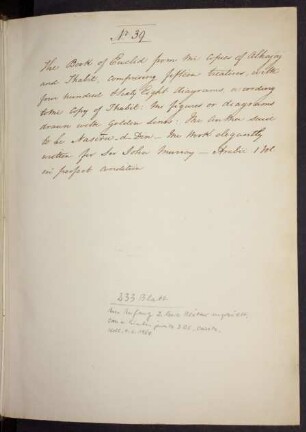 No 39
The Book of Euclid from the copies of Alhajaj
and Thabit, comprising fifteen treatises, with
four hundred & sixty Eight diagrams according
to the copy of Thabit: the figures or diagrams
drawn with Golden lines: The Author said
to be Naseer-d-Deen — the Work elegantly
written for Sir John Murray — Arabic 1 Vol
in perfect condition
233 Blatt
Am Anfang 2